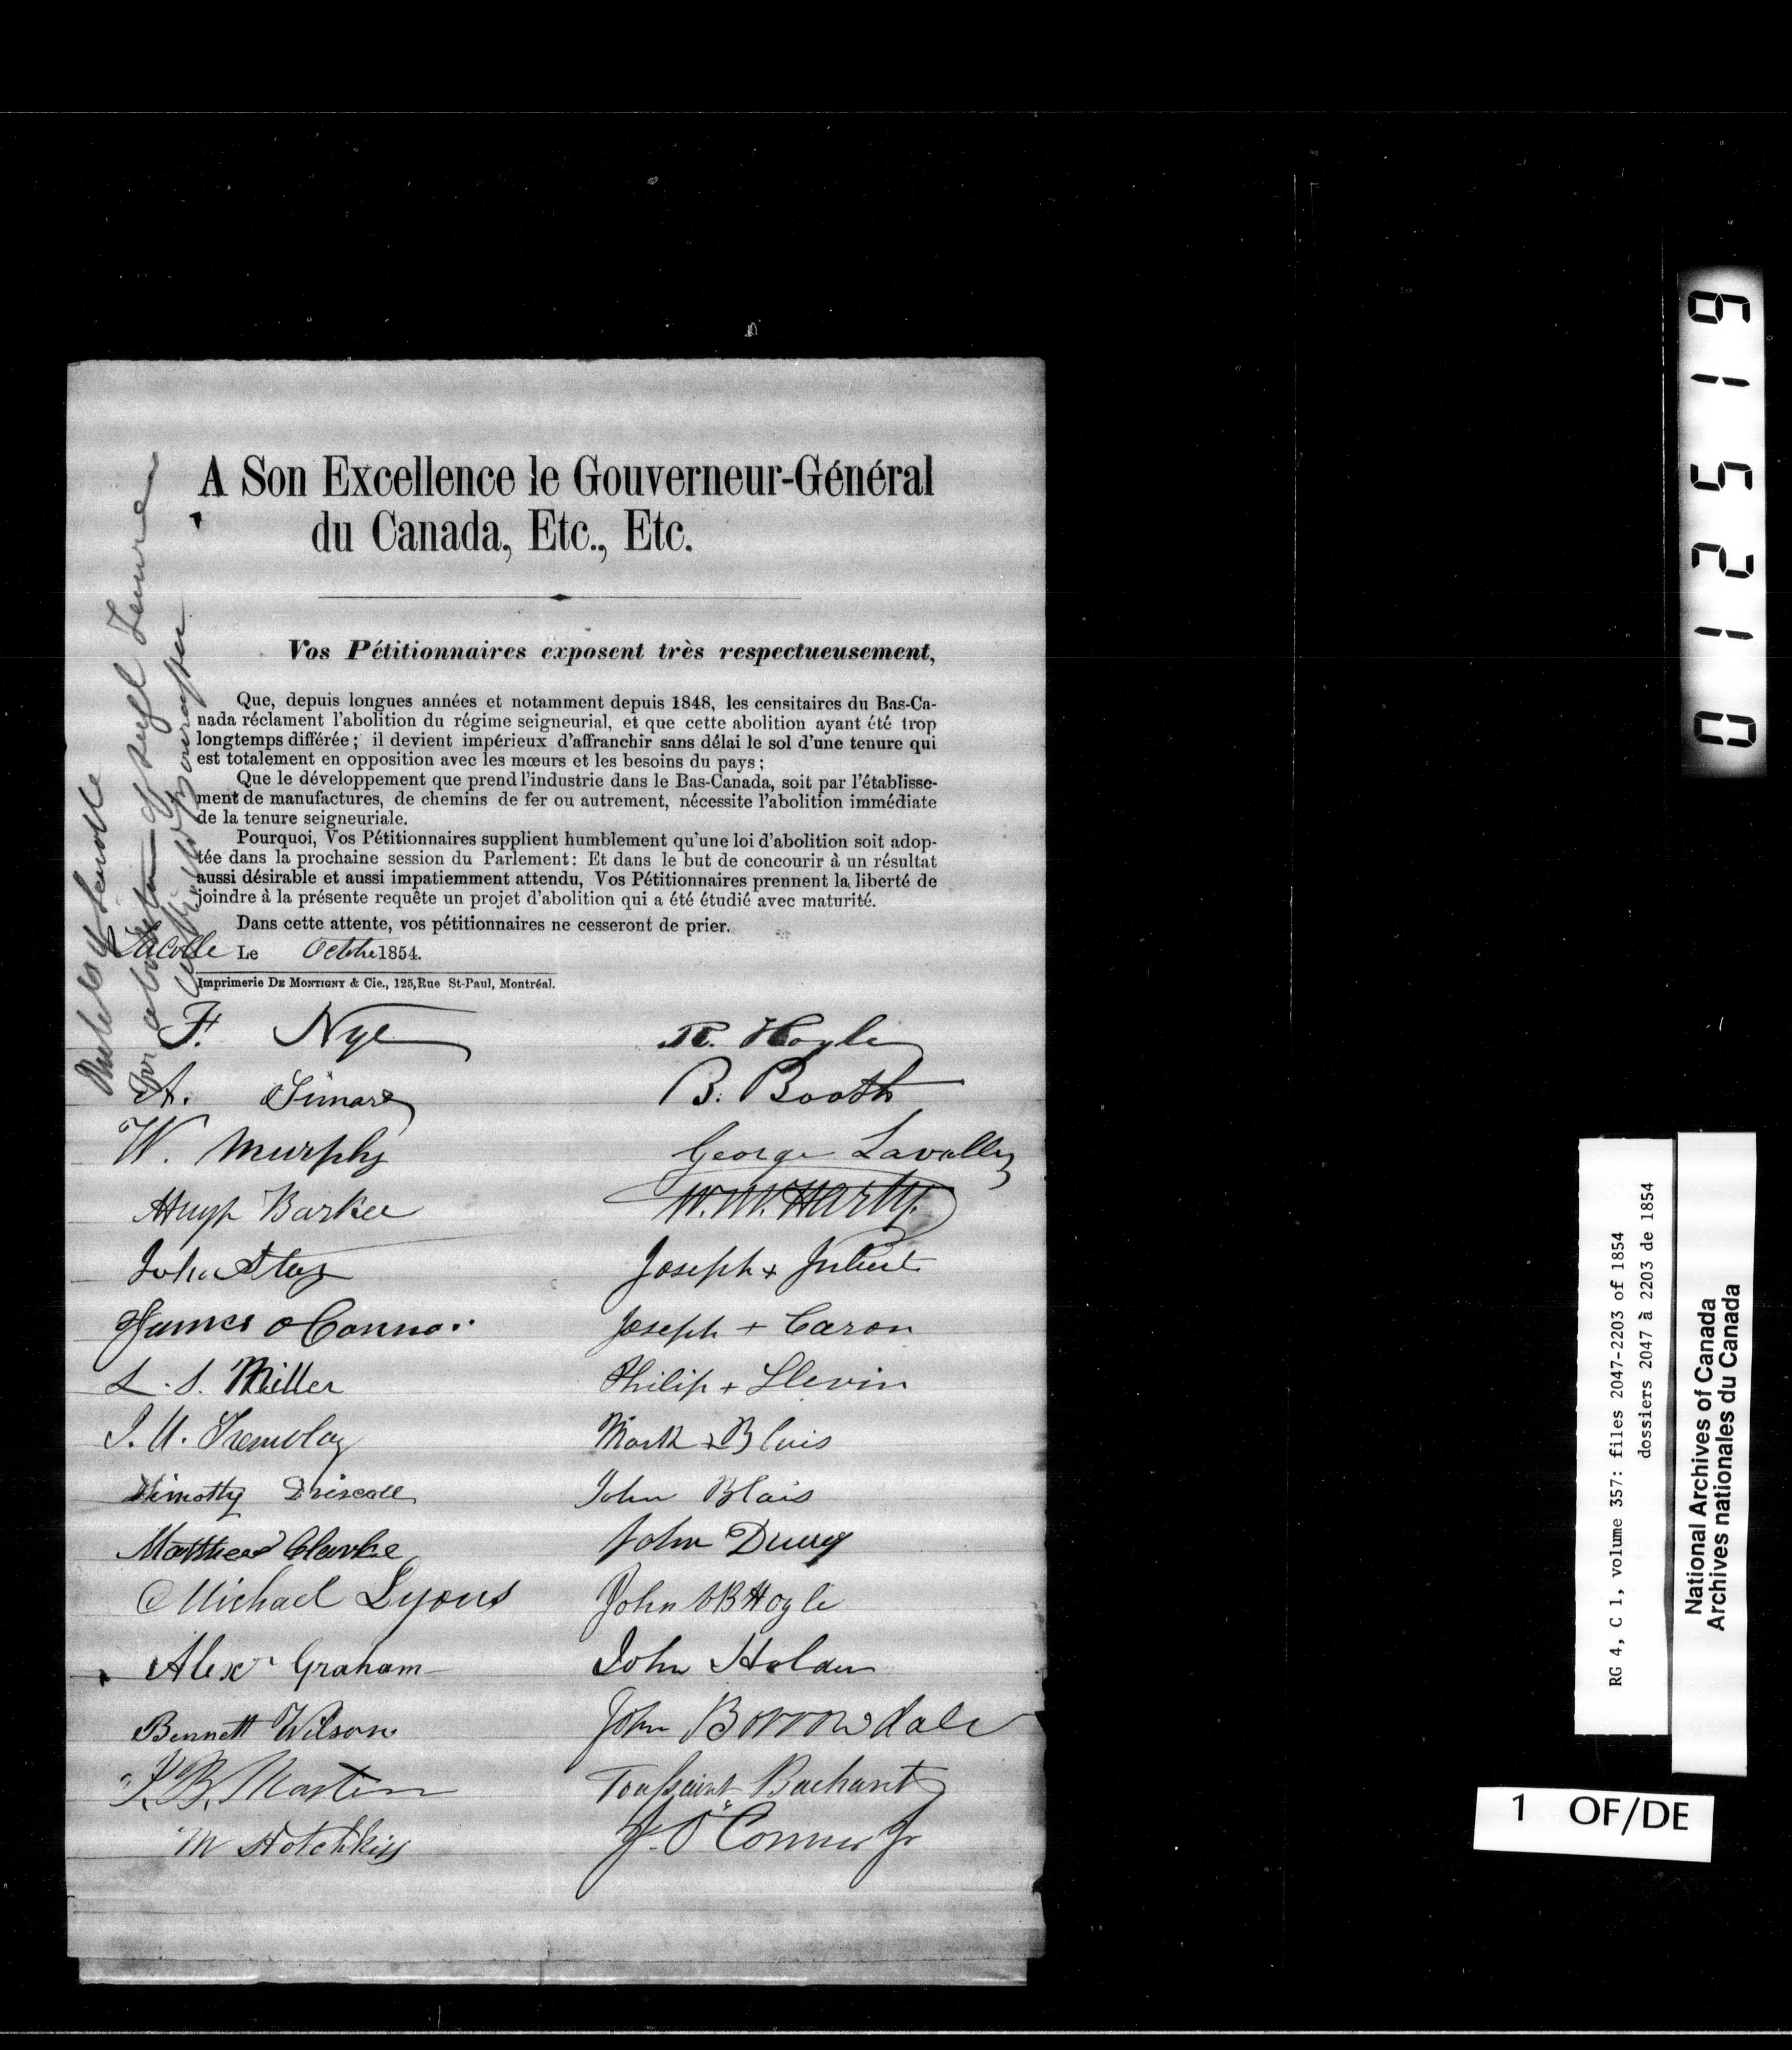 A Son Excellence le Gouverneur-Général
du Canada, Etc., Etc.
Vos Pétitionnaires exposent très respectueusement,
Que, depuis longues années et notamment depuis 1848, les censitaires du Bas-Ca-
nada réclament l'abolition du régime seigneurial, et que cette abolition ayant été trop
longtemps différée; il devient impérieux d'affranchir sans délai le sol d'une tenure qui
est totalement en opposition avec les mœurs et les besoins du pays;
Que le développement que prend l'industrie dans le Bas-Canada, soit par l'établisse-
ment de manufactures, de chemins de fer ou autrement, nécessite l'abolition immédiate
de la tenure seigneuriale.
Pourquoi, Vos Pétitionnaires supplient humblement qu'une loi d'abolition soit adop-
tée dans la prochaine session du Parlement: Et dans le but de concourir à un résultat
aussi désirable et aussi impatiemment attendu, Vos Pétitionnaires prennent la liberté de
joindre à la présente requête un projet d'abolition qui a été étudié avec maturité.
Dans cette attente, vos pétitionnaires ne cesseront de prier.
Lacolle Le Octbre 1854.
Imprimerie DE MONTIGNY & Cie., 125, Rue St-Paul, Montréal.
of Lacolle
for abolition of Tenure
F. Nye
A. Simard
W. Murphy
Hugh Barker
John Stay
James O Connor
L. S. Miller
J. U. Tremblay
Timothy Driscoll
Matthew Clarke
Michael Lyons
Alexr Graham
Bennett Wilson
B. Masten
M Hotchkiss
R. Hoyle
B. Booth
George Lavalley
W. W. Harty.
Joseph +
Joseph + Caron
Philip + Slevin
Mark + Blais
John Blais
John
John Hogle
John Holden
John Borrowdale
Toussaint Bachant
J. O'Connor Jr
0 1 2 5 1 9
RG 4, C 1, volume 357: files 2047-2203 of 1854
dossiers 2047 à 2203 de 1854
National Archives of Canada
Archives nationales du Canada
1 OF/DE